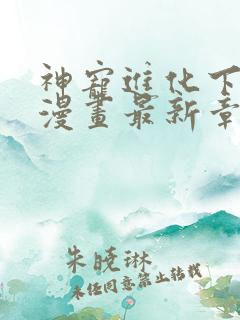 神寵進化下
漫畫最新章
朱晓琳
未经同意禁止转载